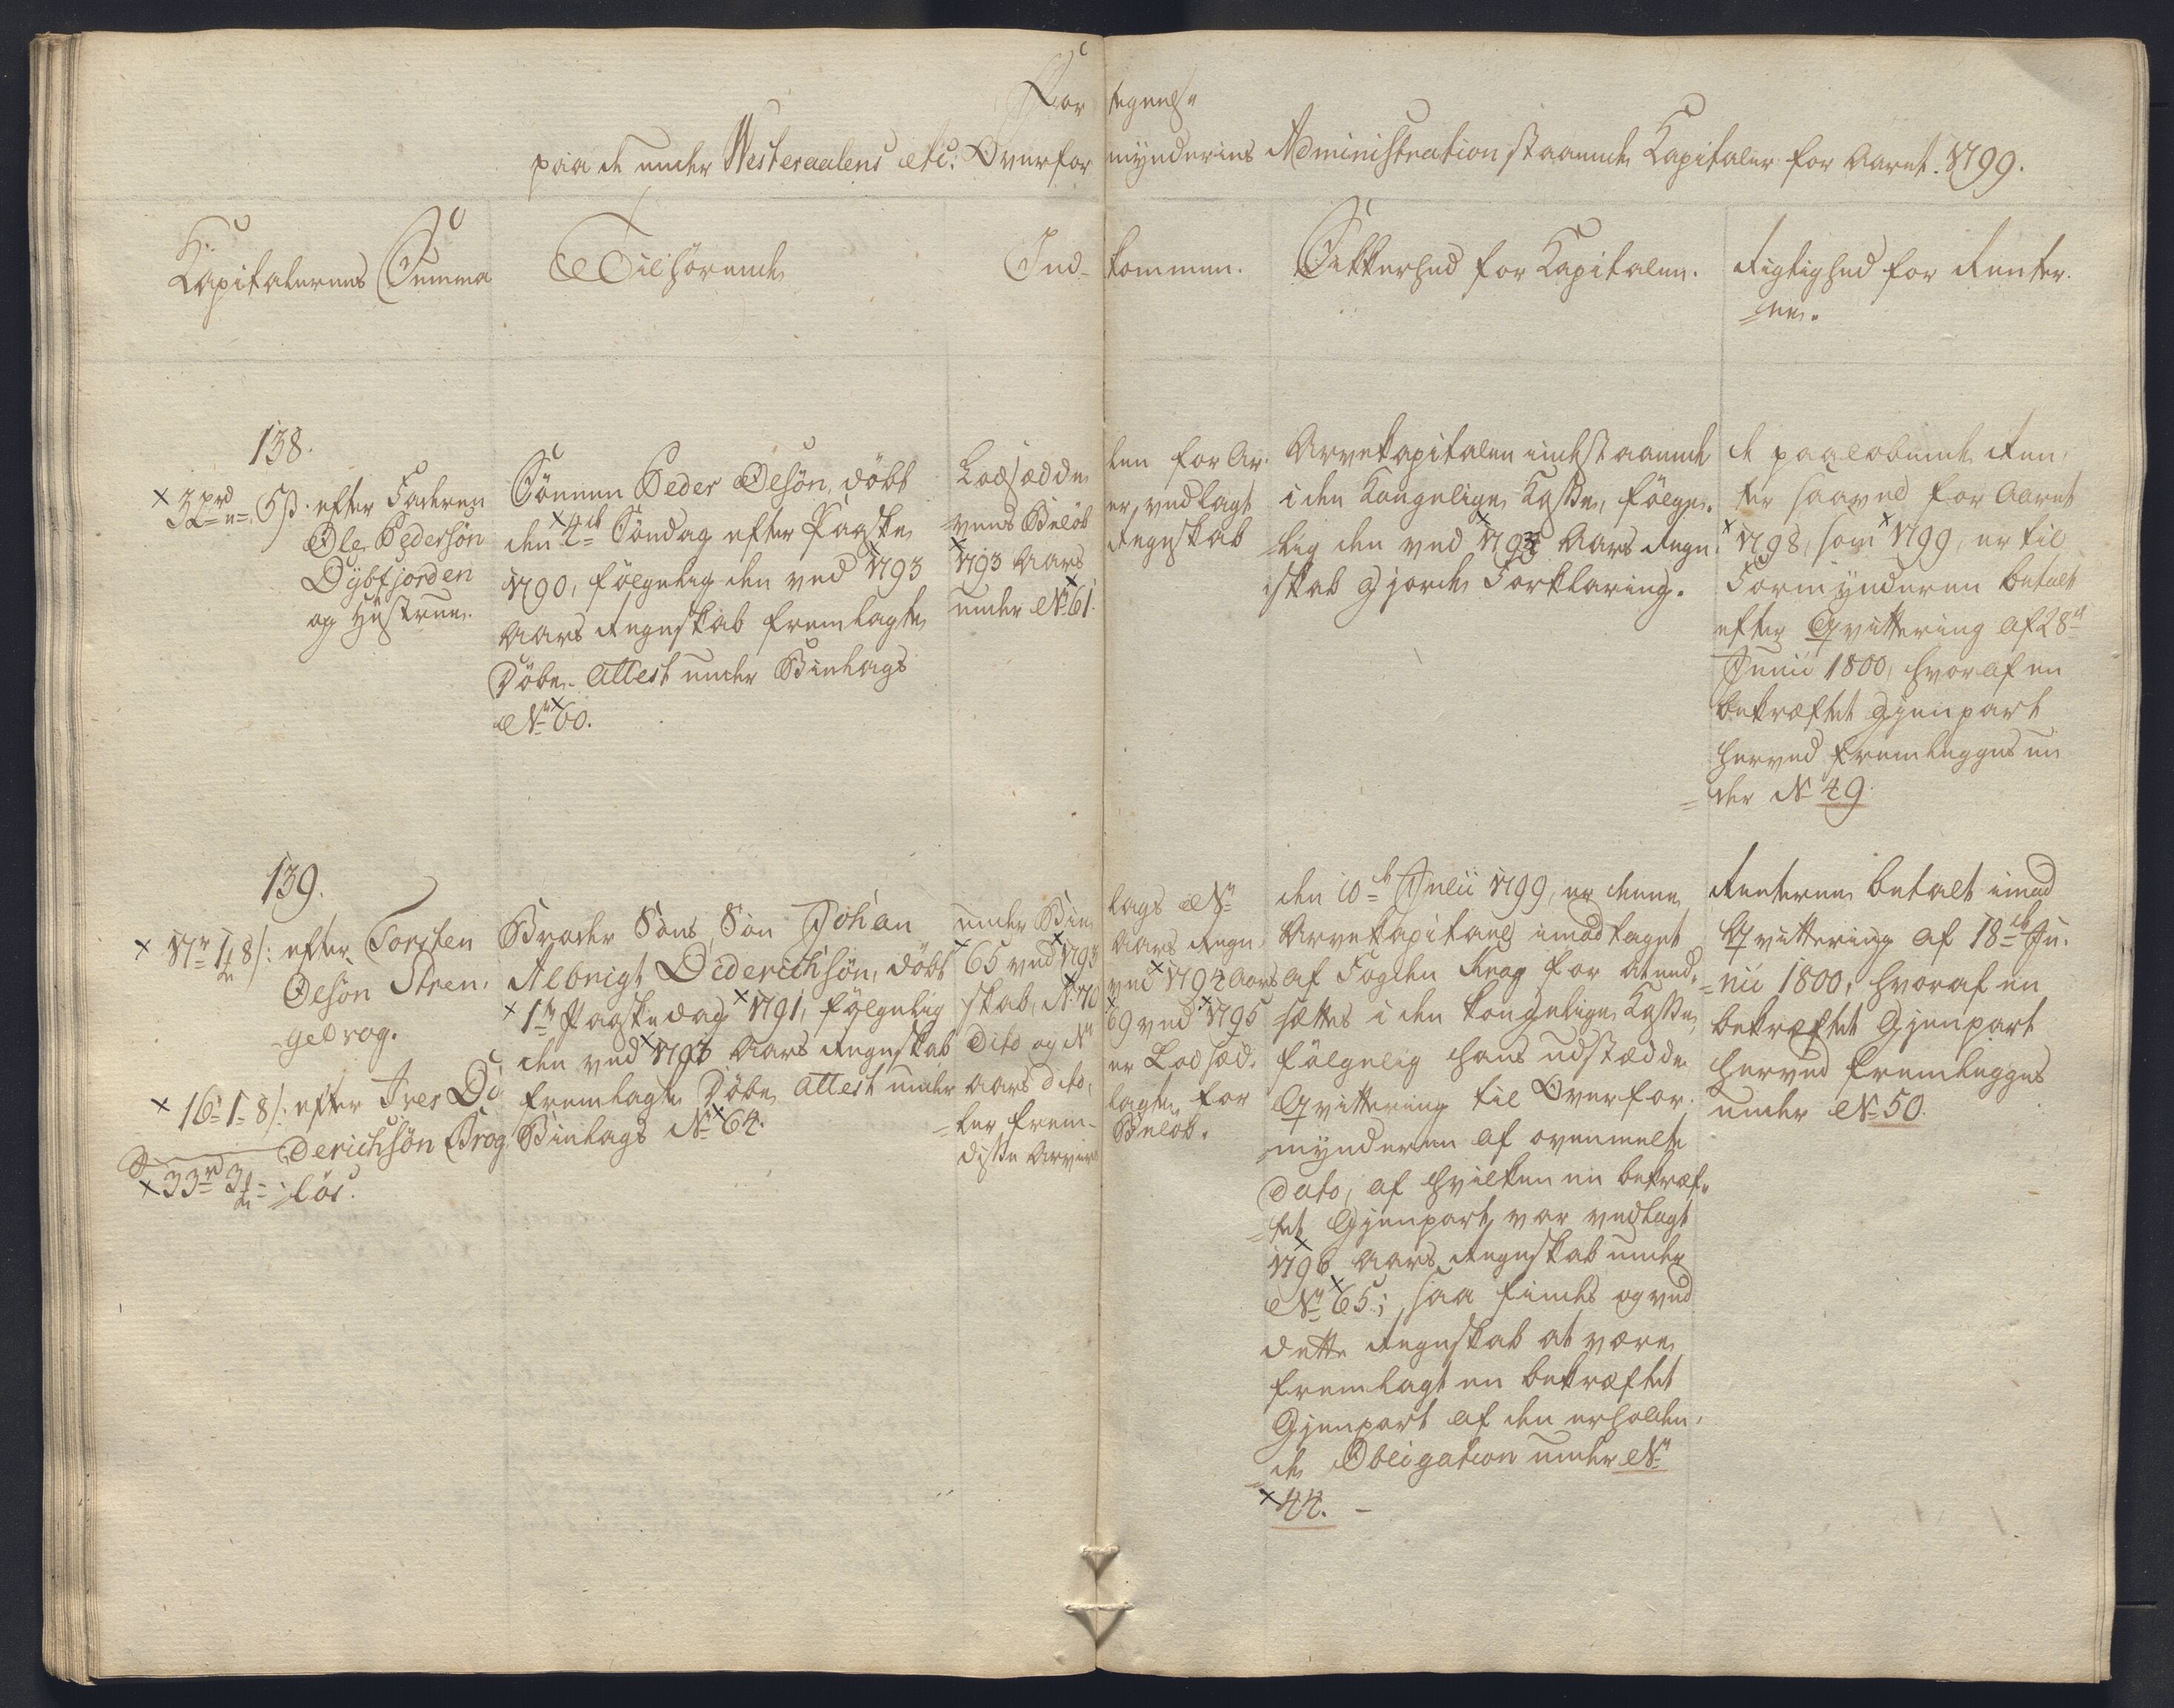 Fortegnelse
paa de under Westeraalens etc: Overformynderies Administration staaende Kapitaler for Aaret 1799.
Kapitalernes Summa
Tilhørende
Indkommen.
Sikkerhed for Kapitalen.
Rigtighed for Renter=
=ne.
138.
efter Faderen
Ole Pedersøn
Dybfjorden
og Hustrue.
Sønnen Peder Olsøn, döbt
den 4de Søndag efter Paaske
1790, følgelig den ved 1793
Aars Regnskab fremlagte
Döbe-Attest under Bielags
No 60.
Lodsedde
vens Beløb
1793 Aars
under No 61.
len for Ar-
er, vedlagt
Regnskab
Arvekapitalen indestaaende
i den Kongelige Kasse, følge-
lig den ved Aars Regn-
skab gjorde Forklaring.
de paaløbende Ren-
ter saavel for Aaret
1798, som 1799, er til
Formynderen betalt
efter Qvittering af 28de
Junii 1800, hvoraf en
bekræftet Gjenpart
herved fremlægges un
=der No 49.
139.
17rd 1 ort 8 s: efter Torsten
Olsøn Stren-
gelvog.
16- 1- 8 s: efter Ives Di
derichsøn Brog
=løs.
33rd 3 ort -
Broder Søns Søn Johan
Albrigt Diderichsøn, döbt
1ste Paaskedag 1791, følgelig
den ved 1793 Aars Regnskab
fremlagte Döbe Attest under
Bielags No 64.
under Bie
65 ved 1793
skab, No 70
Dito og No
Aars dito,
=ler frem-
disse Arve
lags No
Aars Regn-
ved 1794 Aars
69 ved 1795
er Lodsed-
lagte for
Beløb.
den 10de Julii 1799, er denne
Arvekapital imodtaget
af Fogden Krog for at ind-
sættes i den kongelige Kasse,
følgelig hans udstædde
Qvittering til Overfor-
=mynderen af ovenmelte
Dato, af hvilken en bekræf-
=tet Gjenpart var vedlagt
1796 Aars Regnskab under
No 65; saa findes og ved
dette Regnskab at være
fremlagt en bekræftet
Gjenpart af den erholden-
=de Obligation under No
44. -
Renterne betalt imod
Qvittering af 18de Ju-
=nii 1800, hvoraf en
bekræftet Gjenpart
herved fremlægges
under No 50.